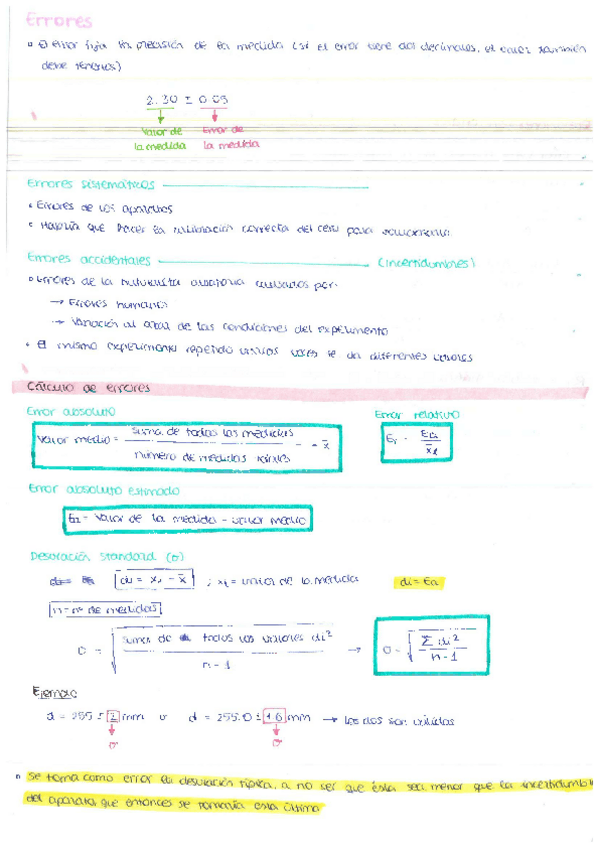 Errores
El error fija la precisión de la medida (si el error tiene dos decimales, el valor también
debe tenerlos)
2.30 ± 0.05
Valor de Error de
la medida la medida
Errores sistemáticos
Errores de los aparatos
Habría que hacer la calibración correcta del cero para solucionarlo.
Errores accidentales (incertidumbres)
Errores de la naturaleza aleatoria causados por:
→ Errores humanos
→ Variación al azar de las condiciones del experimento
El mismo experimento repetido varias veces te da diferentes valores
Cálculo de errores
Error absoluto Error relativo
Valor medio = suma de todas las medidas / número de medidas totales = x̄ Er = Ea / x̄
Error absoluto estimado
Ea = Valor de la medida - valor medio
Desviación standard (σ)
di = xi - x̄ ; xi = valor de la medida di = Ea
n = nº de medidas
σ = √ suma de todos los valores di² / n - 1 → σ = √ Σ di² / n - 1
Ejemplo
d = 255 ± 2 mm o d = 255.0 ± 1.6 mm → las dos son válidas
σ σ
Se toma como error la desviación típica, a no ser que ésta sea menor que la incertidumbre
del aparato, que entonces se tomaría esta última